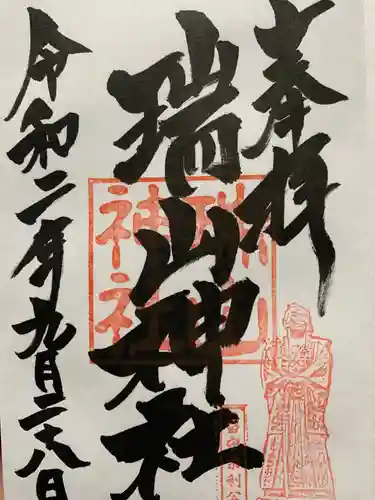 奉拝
瑞山神社
令和二年九月二十八日
瑞山
神社